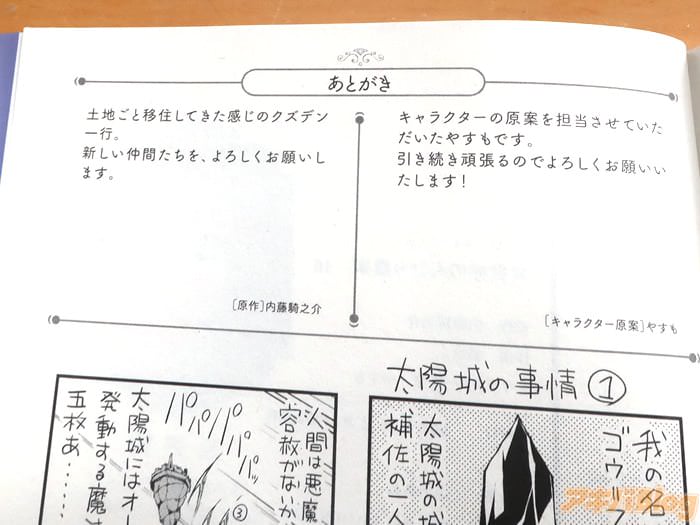 あとがき
土地ごと移住してきた感じのクズデン
一行。
新しい仲間たちを、よろしくお願いし
ます。
[原作]内藤騎之介
キャラクターの原案を担当させていた
だいたやすもです。
引き続き頑張るのでよろしくお願いい
たします！
[キャラクター原案]やすも
太陽城の事情①
我の名
ゴウ
太陽城の城
補佐の一人
人間は悪魔
容赦がなか
パパパパパ
③
太陽城にはオー
発動する魔法
五枚あ……
アキバBlog